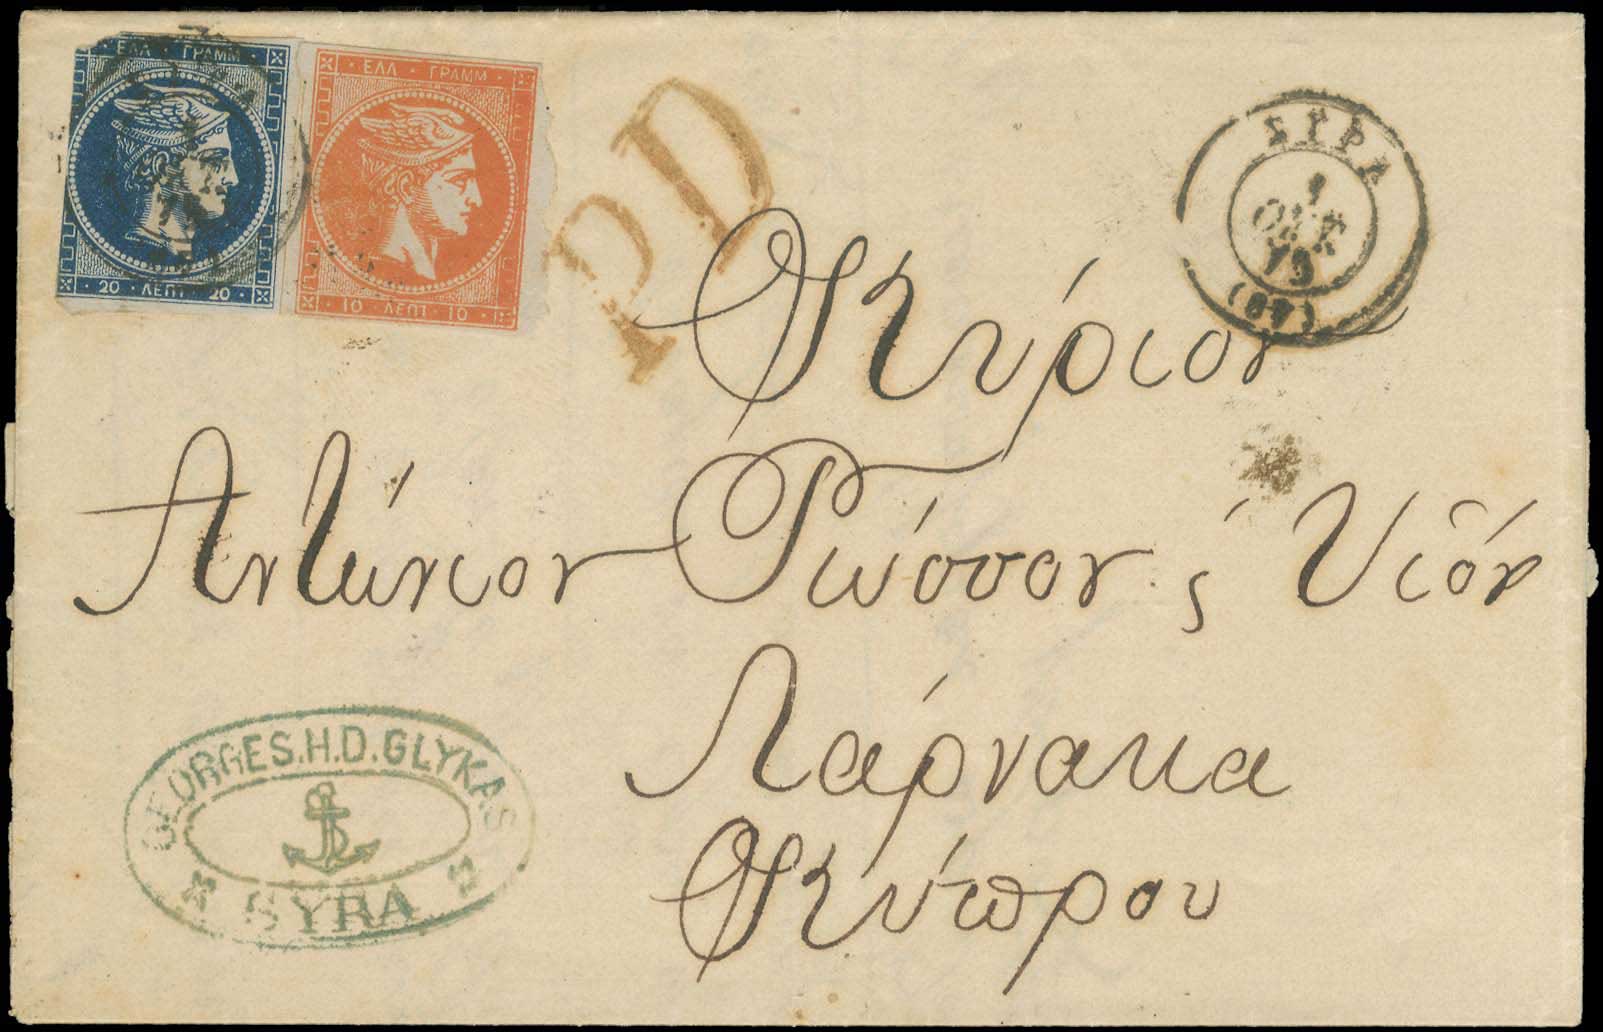 ΕΛΛ · ΓΡΑΜΜ
20 · ΛΕΠΤ · 20
ΕΛΛ · ΓΡΑΜΜ
10 · ΛΕΠΤ · 10
PD
ΣΥΡΑ
1
ΟΚΤ
75
(67)
Κύριον
Αντώνιον Ρώσσον ϛ Υἱόν
Λάρνακα
Κύπρου
GEORGES.H.D.GLYKAS
SYRA